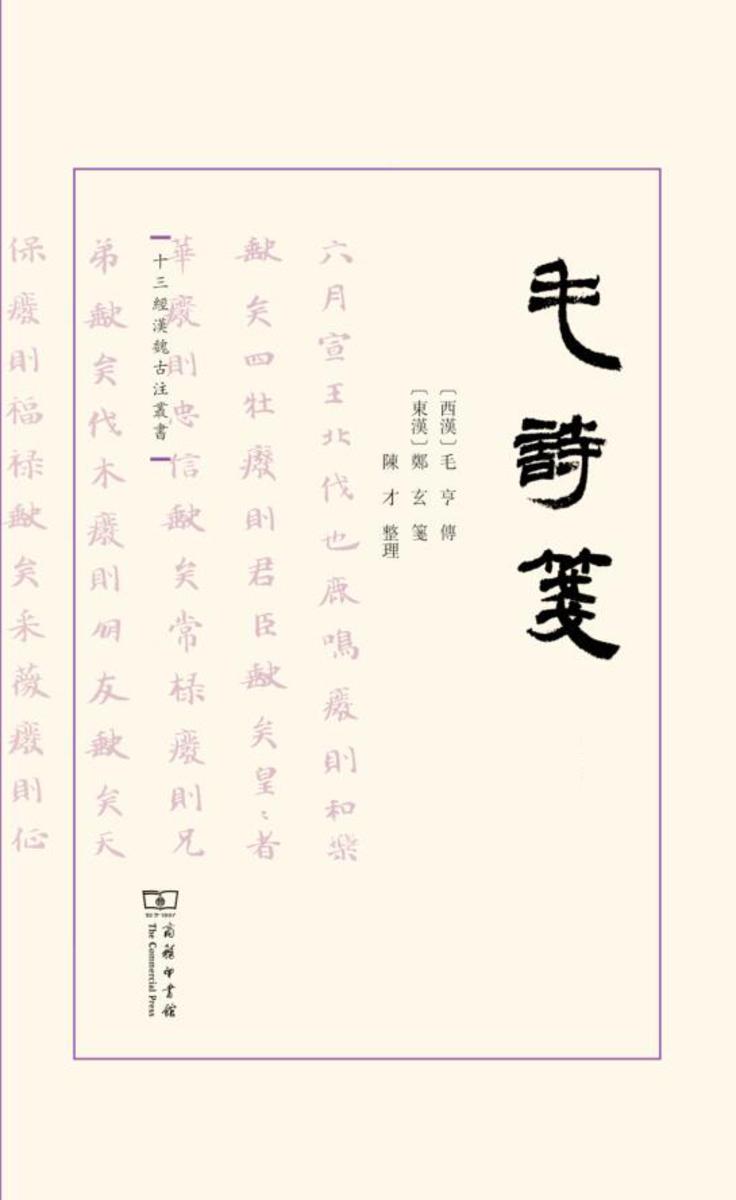 毛詩箋
〔西漢〕毛亨傳
〔東漢〕鄭玄箋
陳才整理
六月宣王北伐也鹿鳴廢則和樂
缺矣四牡廢則君臣缺矣皇〻者
華廢則忠信缺矣常棣廢則兄
弟缺矣伐木廢則朋友缺矣天
保廢則福祿缺矣采薇廢則征
十三經漢魏古注叢書
商務印書館
The Commercial Press